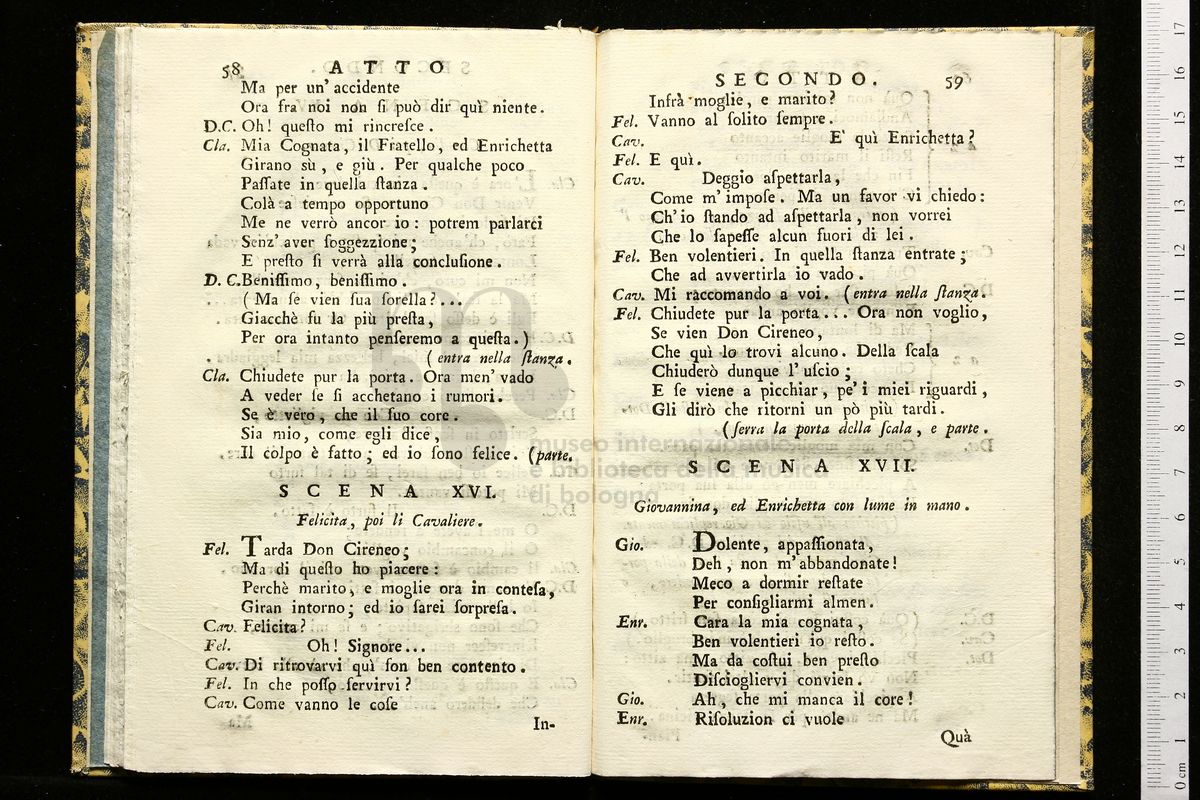 58 ATTO
Ma per un' accidente
Ora fra noi non ſi può dir quì niente.
D.C. Oh! queſto mi rincreſce.
Cla. Mia Cognata, il Fratello, ed Enrichetta
Girano sù, e giù. Per qualche poco
Paſſate in quella ſtanza.
Colà a tempo opportuno
Me ne verrò ancor io: potrem parlarci
Senz' aver ſoggezzione;
E preſto ſi verrà alla concluſione.
D. C. Beniſſimo, beniſſimo.
(Ma ſe vien ſua ſorella?...
Giacchè fu la più preſta,
Per ora intanto penſeremo a queſta.)
(entra nella ſtanza.
Cla. Chiudete pur la porta. Ora men' vado
A veder ſe ſi acchetano i rumori.
Se è vero, che il ſuo core.
Sia mio, come egli dice,
Il colpo è fatto; ed io ſono felice. (parte.
SCENA XVI.
Felicita, poi li Cavaliere.
Fel. Tarda Don Cireneo;
Ma di queſto ho piacere:
Perchè marito, e moglie ora in conteſa,
Giran intorno; ed io ſarei ſorpreſa.
Cav. Felicita?
Fel. Oh! Signore...
Cav. Di ritrovarvi quì ſon ben contento.
Fel. In che poſſo ſervirvi?
Cav. Come vanno le coſe
In-
SECONDO. 59
Infrà moglie, e marito?
Fel. Vanno al ſolito ſempre.
Cav. E' quì Enrichetta?
Fel. E quì.
Cav. Deggio aſpettarla,
Come m' impoſe. Ma un favor vi chiedo:
Ch' io ſtando ad aſpettarla, non vorrei
Che lo ſapeſſe alcun fuori di lei.
Fel. Ben volentieri. In quella ſtanza entrate;
Che ad avvertirla io vado.
Cav. Mi raccomando a voi. (entra nella ſtanza.
Fel. Chiudete pur la porta... Ora non voglio,
Se vien Don Cireneo,
Che quì lo trovi alcuno. Della ſcala
Chiuderò dunque l' uſcio;
E ſe viene a picchiar, pe' i miei riguardi,
Gli dirò che ritorni un pò più tardi.
(ſerra la porta della ſcala, e parte.
SCENA XVII.
Giovannina, ed Enrichetta con lume in mano.
Gio. Dolente, appaſſionata,
Deh, non m' abbandonate!
Meco a dormir reſtate
Per conſigliarmi almen.
Enr. Cara la mia cognata,
Ben volentieri io reſto.
Ma da coſtui ben preſto
Diſciogliervi convien.
Gio. Ah, che mi manca il core!
Enr. Riſoluzion ci vuole
Quà
museo internazionale
e biblioteca della musica
di bologna
0 cm 1 2 3 4 5 6 7 8 9 10 11 12 13 14 15 16 17